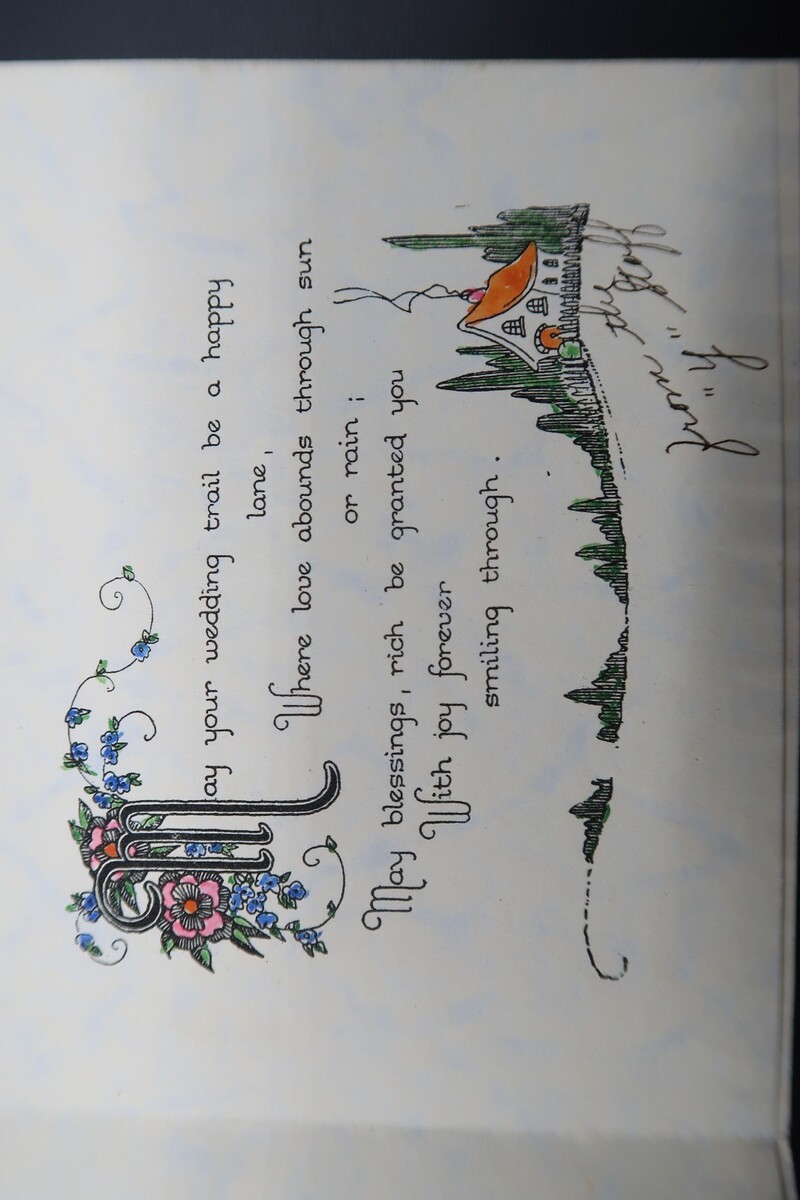 May your wedding trail be a happy
lane,
Where love abounds through sun
or rain;
May blessings, rich be granted you
With joy forever
smiling through.
from the
"Y" Staff